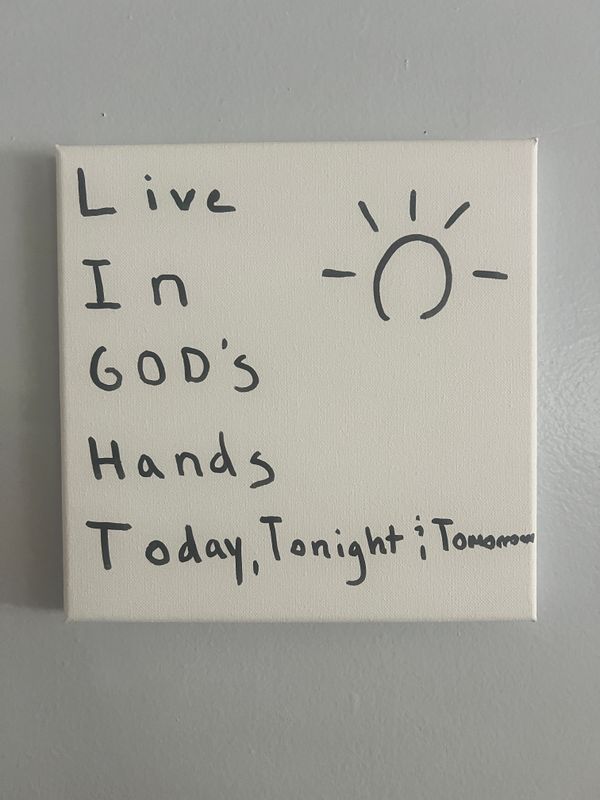 Live
In
GOD's
Hands
Today, Tonight & Tomorrow